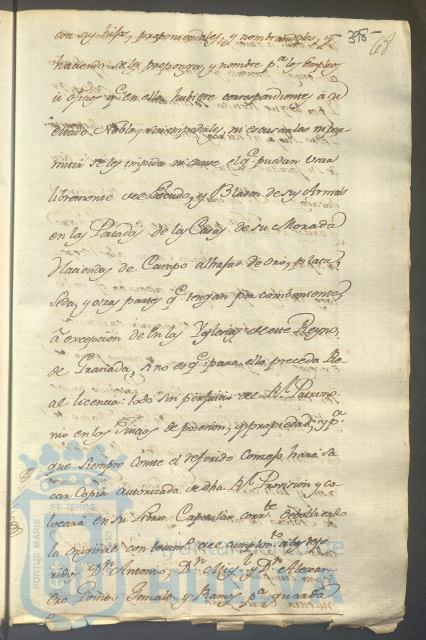 376 68
con sus hijos, proponiendoles, y nombrandoles, y
haciendo se les proponga, y nombre pª los Empleos
ú oficios qͤ en ella hubiere correspondientes à su
estado Noble, sin impedirles, ni escusarles ni per-
mitir se les impida ni escuse el qͤ puedan usar
libremente del Escudo, y Blason de sus Armas
en las Portadas de las Casas de su Morada
Haciendas de Campo alhajas de oro, plata,
seda, y otras partes qͤ tengan por combeniente,
à excepcion de en las Yglesias de este Reyno,
de Granada, sino es qͤ para ello preceda Re-
al licencia: todo sin perjuicio del Rˡ Patrimo-
nio en los Juicios de posesion, y propiedad; y pª
que siempre conste el referido Concejo hara sa-
car Copia autorizada de dha Rˡ Provision y co-
locara en su Libro Capitular corrᵗᵉ debolbiendo
la original con testimº de su cumplimᵗº a los refe-
ridos Dⁿ Antonio, Dⁿ Migˡ y Dⁿ Alexan-
dro Gomez y Ramos pª guarda
PORTUS MARIS ET TERRE